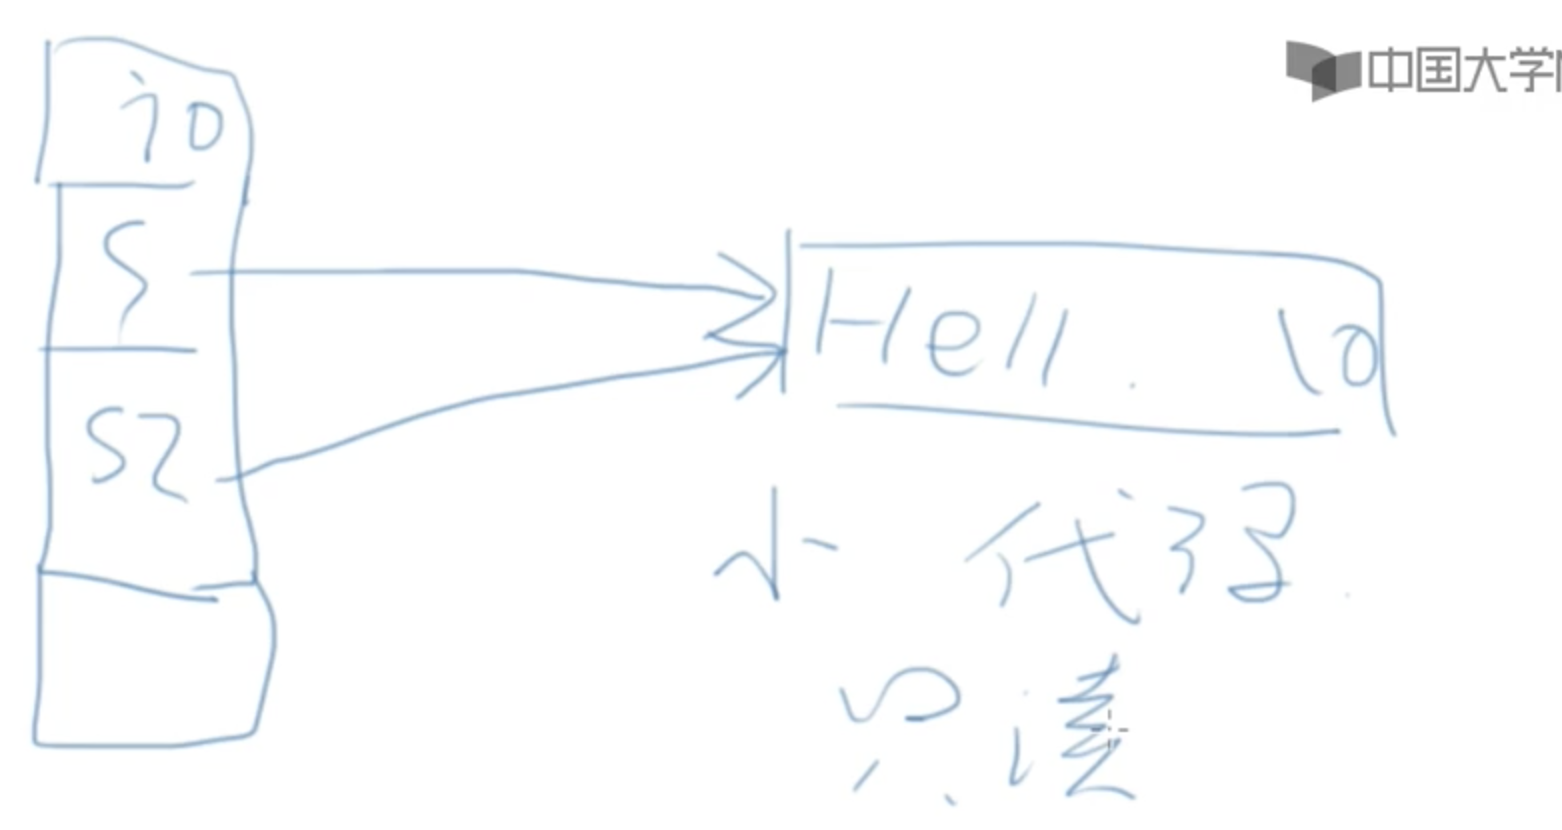 中国大学
i 0
s
s2
Hell \0
小 代码
只读